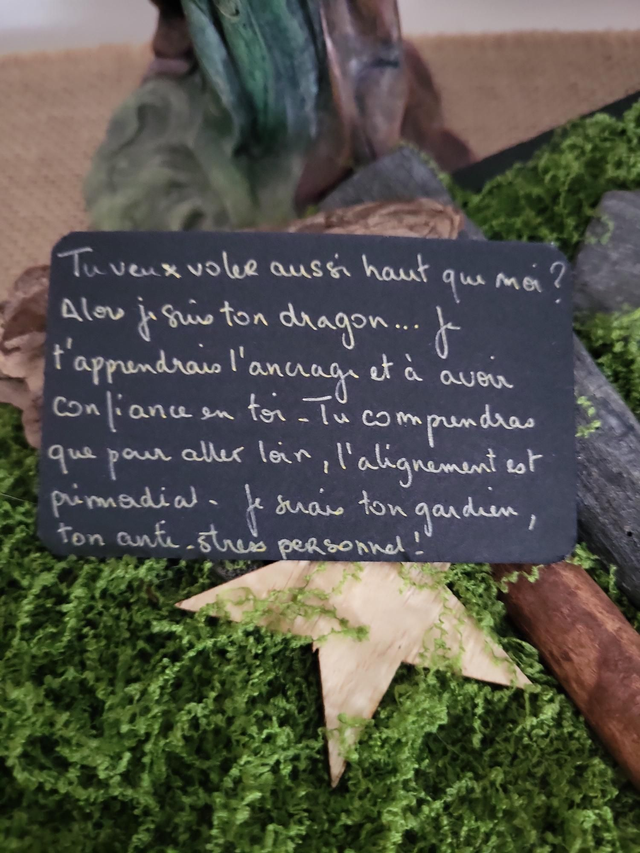 Tu veux voler aussi haut que moi ?
Alors je suis ton dragon... Je
t'apprendrais l'ancrage et à avoir
confiance en toi. Tu comprendras
que pour aller loin, l'alignement est
primordial. Je serais ton gardien,
ton anti-stress personnel !